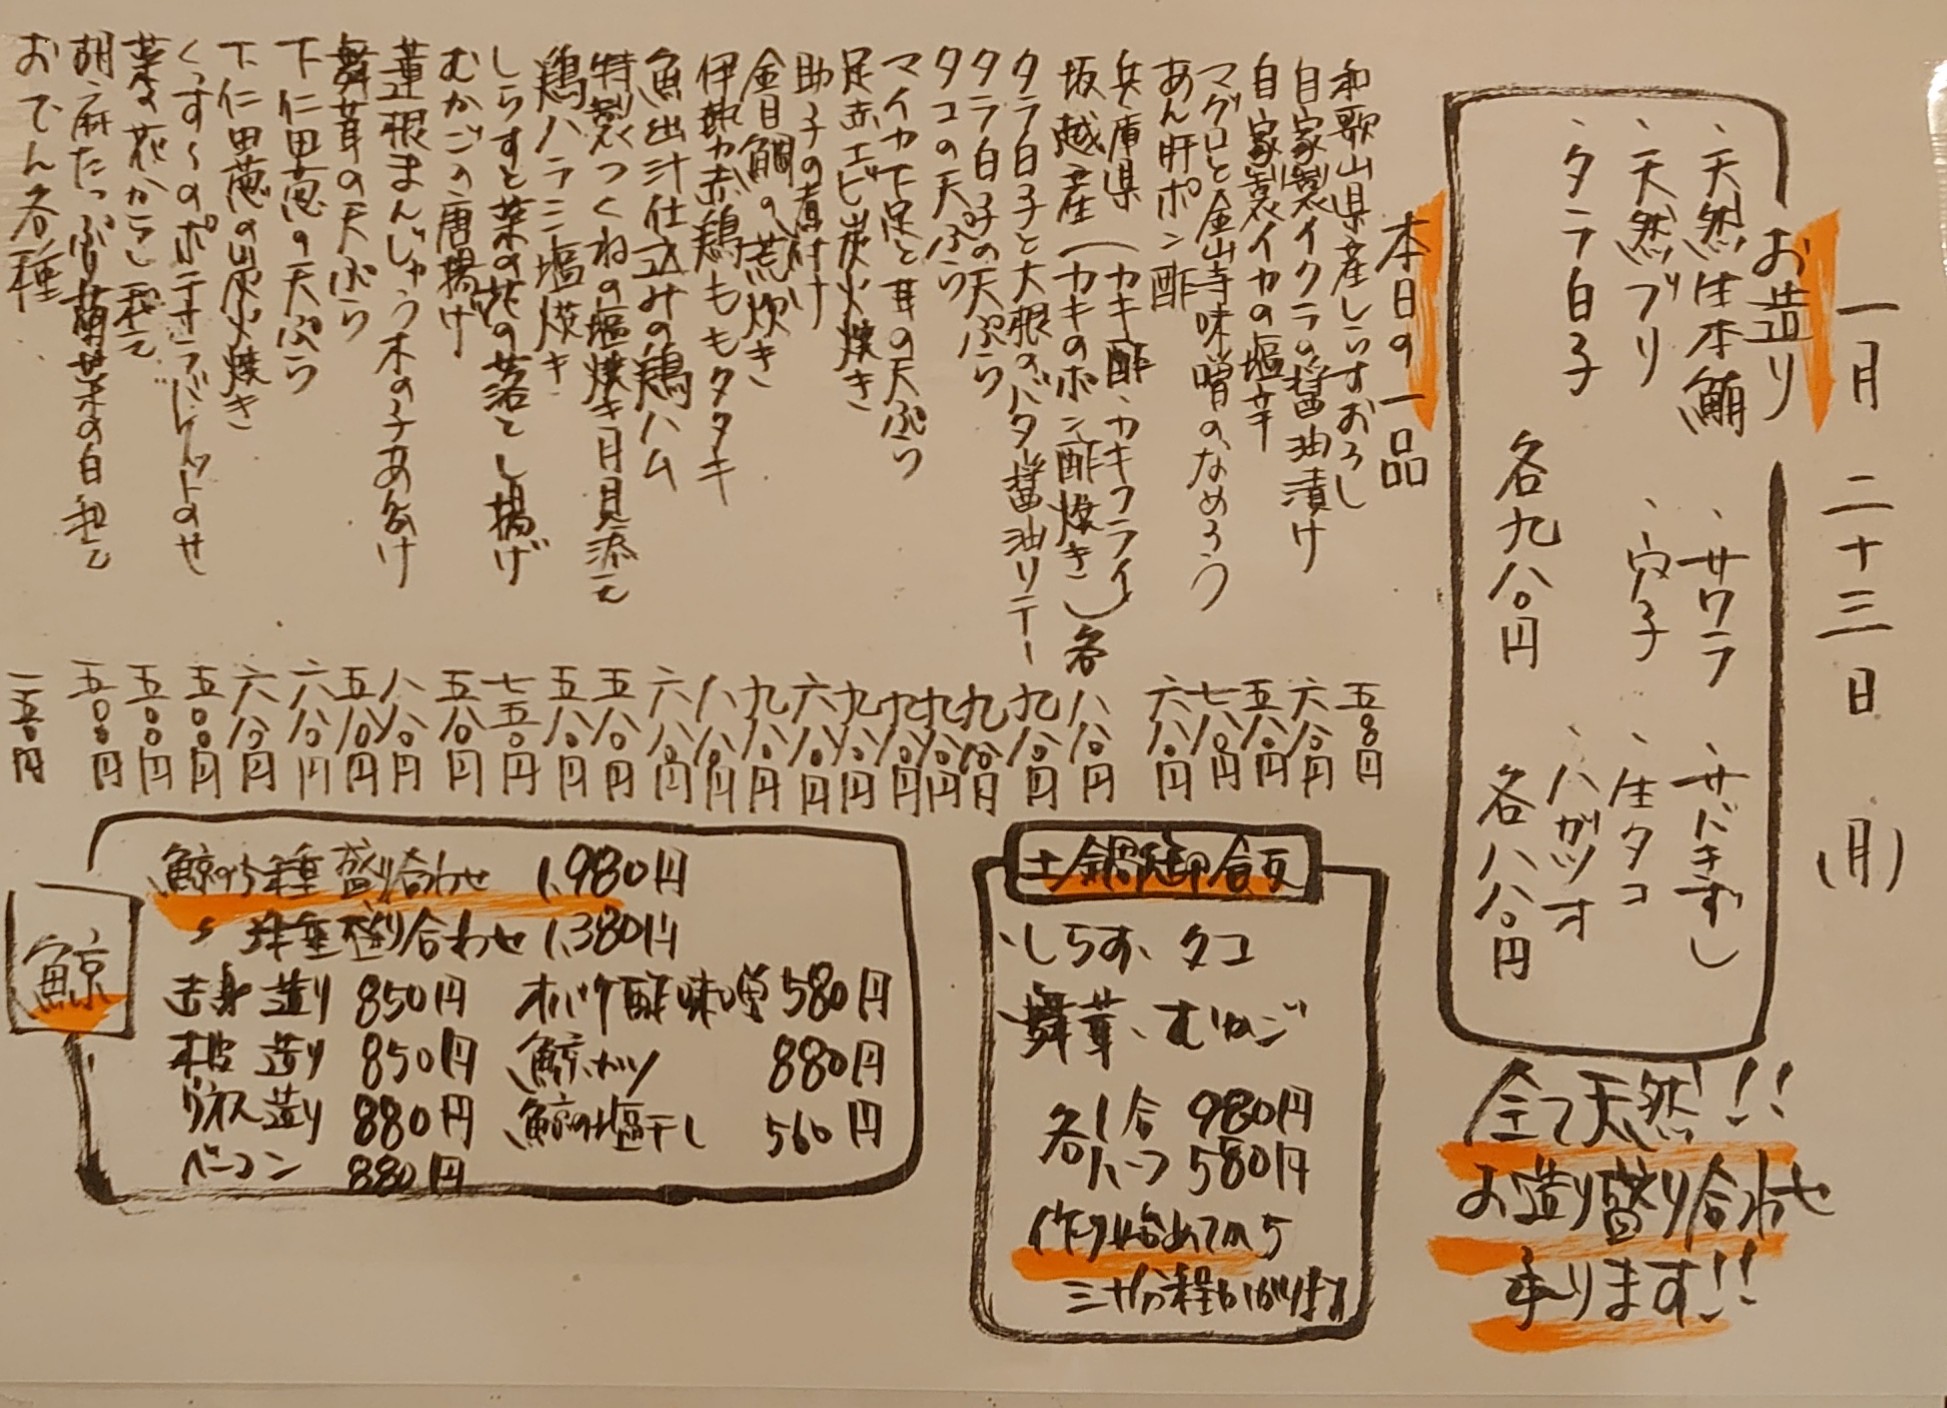 一月 二十三日 (月)
お造り
、天然生本鮪 、サワラ 、サバきずし
、天然ブリ 、穴子 、生タコ
、タラ白子 、ハガツオ
各九八〇円 各八八〇円
全て天然!!
お造り盛り合わせ
承ります!!
本日の一品
和歌山県産しらすおろし 五〇〇円
自家製イクラの醤油漬け 六八〇円
自家製イカの塩辛 五八〇円
マグロと金山寺味噌のなめろう 七八〇円
あん肝ポン酢 六八〇円
兵庫県 (カキ酢、カキフライ
坂越産 (カキのポン酢焼き) 各 八八〇円
タラ白子と大根のバター醤油ソテー 九八〇円
タラ白子の天ぷら 九八〇円
タコの天ぷら
マイカ下足と耳の天ぷら
足赤エビ炭火焼き 九八〇円
助子の煮付け 六八〇円
金目鯛の荒炊き 九八〇円
伊勢赤鶏ももタタキ 八八〇円
魚出汁仕込みの鶏ハム 六八〇円
特製つくねの塩焼き月見添え 五八〇円
鶏ハラミ塩焼き 五八〇円
しらすと菜の花の落とし揚げ 七五〇円
むかごの唐揚げ 五八〇円
蓮根まんじゅう木の子あんかけ 八八〇円
舞茸の天ぷら 五八〇円
下仁田葱の天ぷら 六八〇円
下仁田葱の炭火焼き 六八〇円
くっす〜のポテサラバゲットのせ 五〇〇円
菜の花からし和え 五〇〇円
胡麻たっぷり菊菜の白和え 五〇〇円
おでん各種 一五〇円
土鍋御飯
、しらす、タコ
、舞茸、むかご
各1合 980円
各ハーフ 580円
作り始めてから
三十分程かかります
鯨
鯨の5種盛り合わせ 1,980円
〃 3種盛り合わせ 1,380円
赤身造り 850円 オバケ酢味噌 580円
本皮造り 850円 鯨カツ 880円
ウネス造り 880円 鯨の塩干し 560円
ベーコン 880円